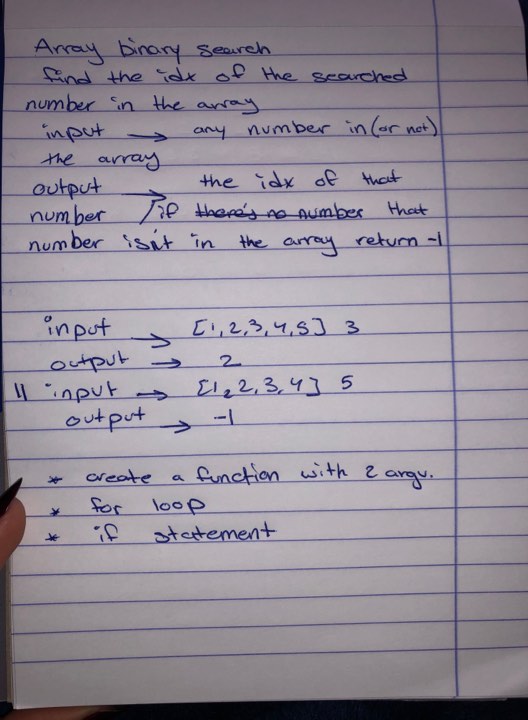 Array binary search
find the idx of the searched
number in the array
input → any number in (or not)
the array
output → the idx of that
number / if there's no number that
number isn't in the array return -1
input → [1,2,3,4,5] 3
output → 2
11 input → [1,2,3,4] 5
output → -1
* create a function with 2 argu.
* for loop
* if statement